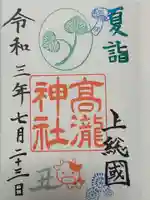 夏詣
上総國
高瀧
神社
丑
令和三年七月二十三日